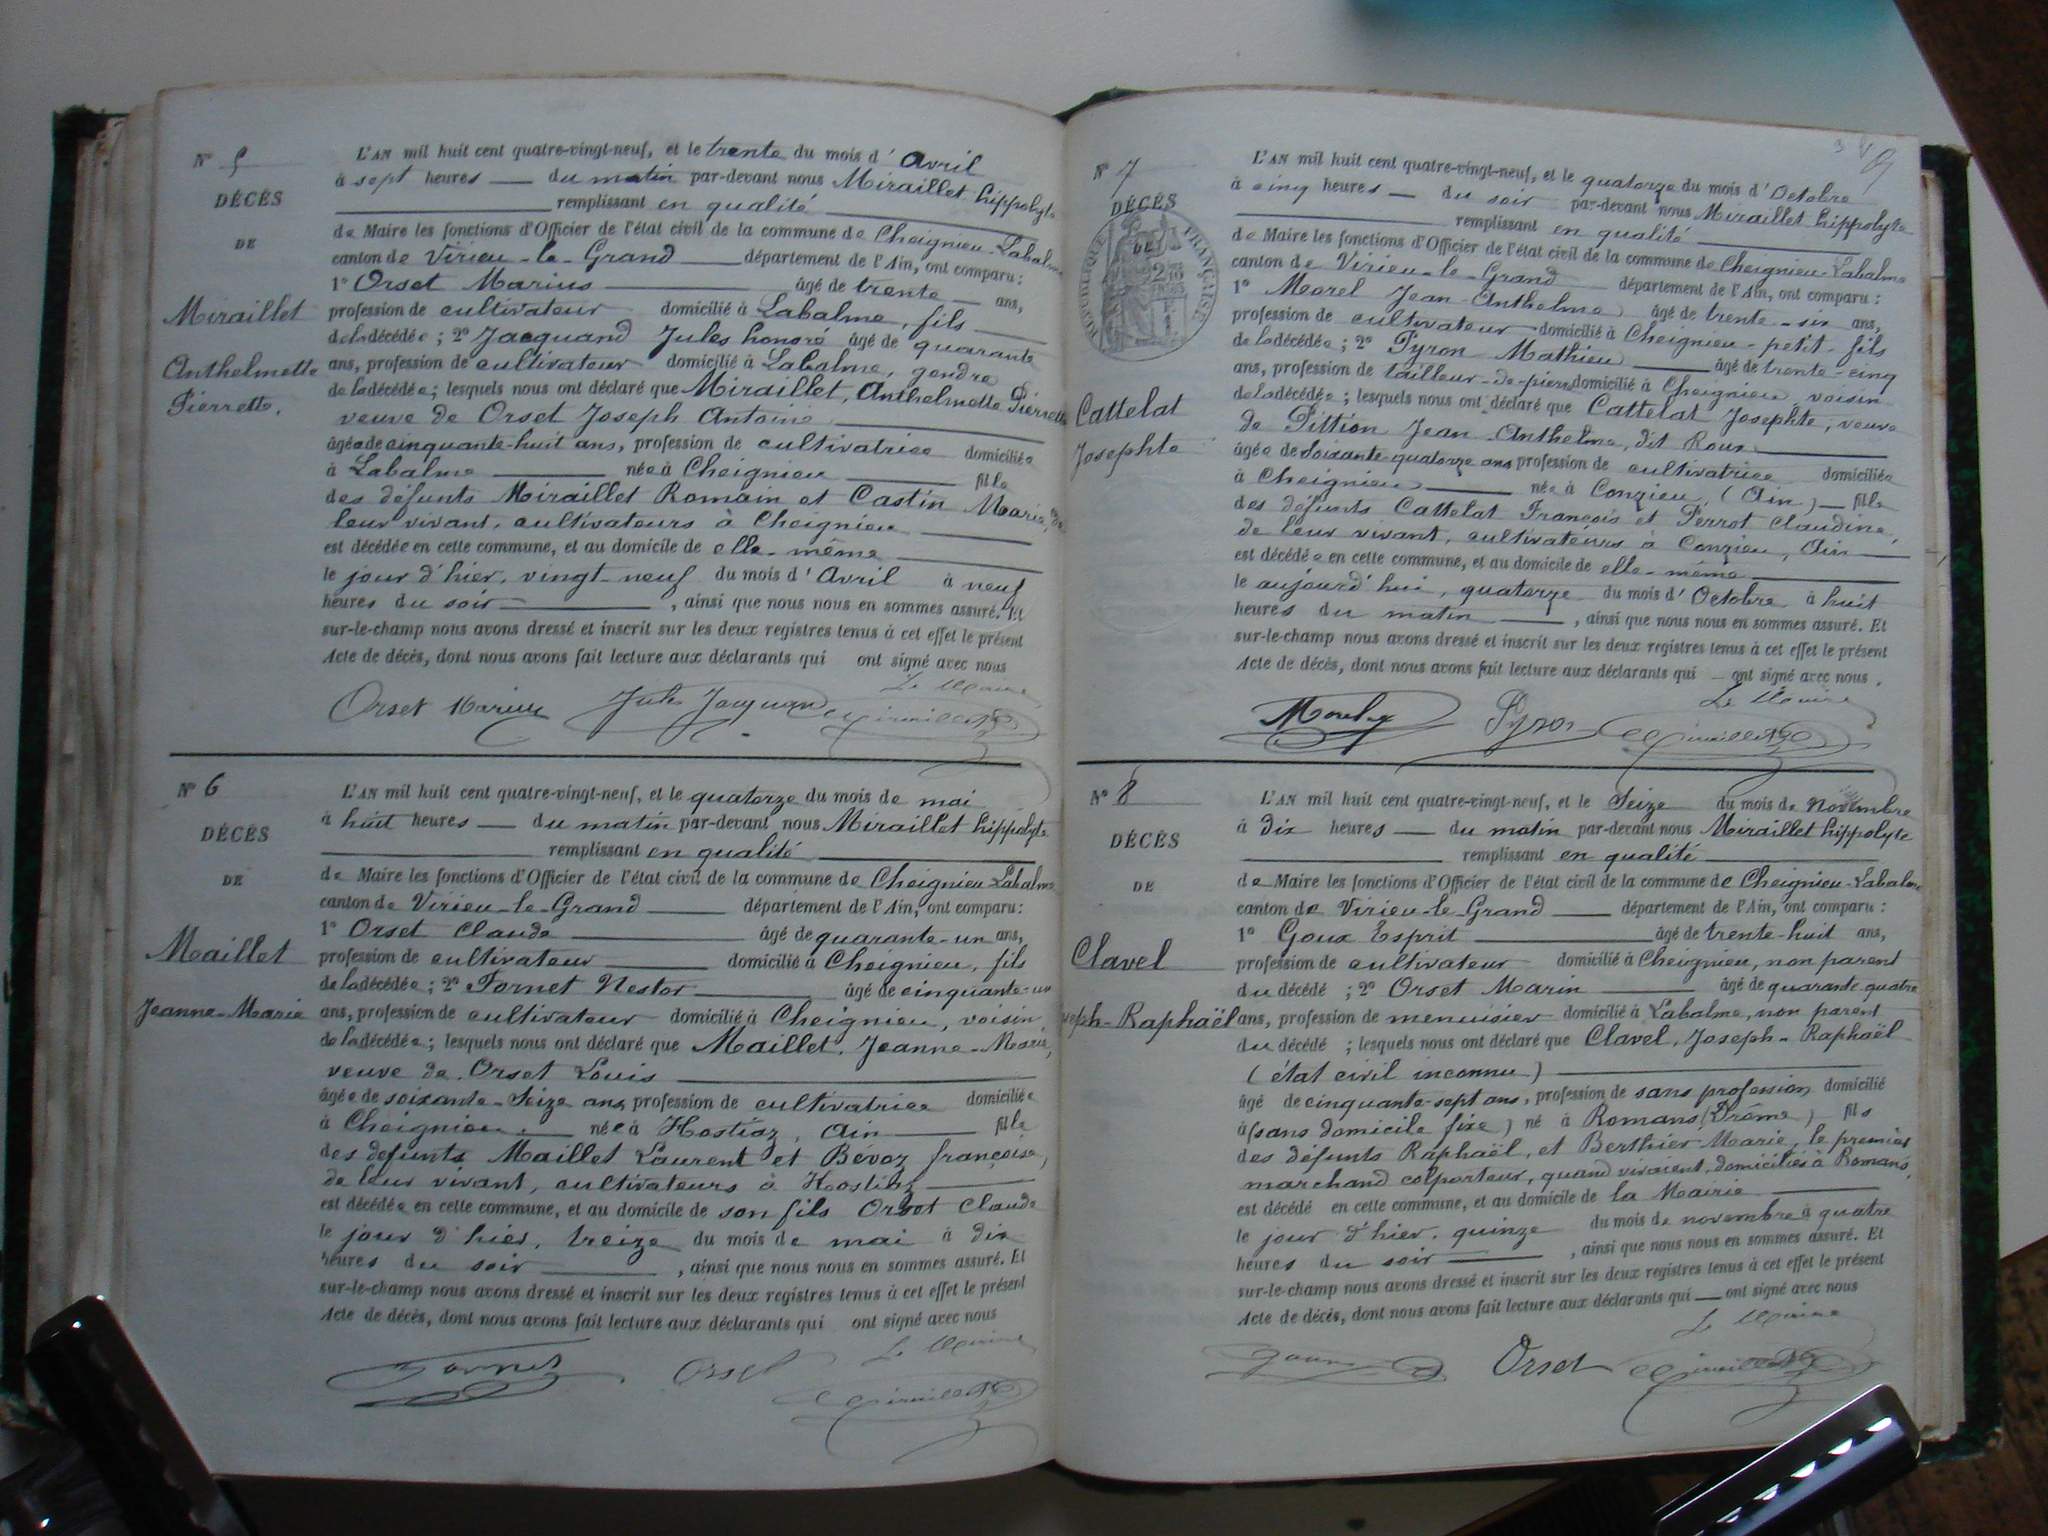 N° 5
DÉCÈS
DE
Miraillet
Anthelmette
Pierrette.
L'AN mil huit cent quatre-vingt-neuf, et le trente du mois d' Avril
à sept heures du matin par-devant nous Miraillet hippolyte
remplissant en qualité
de Maire les fonctions d'Officier de l'état civil de la commune de Cheignieu-Labalme
canton de Virieu-le-Grand département de l'Ain, ont comparu :
1° Orset Marius âgé de trente ans,
profession de cultivateur domicilié à Labalme, fils
de la décédée ; 2° Jacquand Jules honoré âgé de quarante
ans, profession de cultivateur domicilié à Labalme, gendre
de la décédée ; lesquels nous ont déclaré que Miraillet, Anthelmette Pierrette
veuve de Orset Joseph Antoine
âgée de cinquante-huit ans, profession de cultivatrice domiciliée
à Labalme née à Cheignieu fille
des défunts Miraillet Romain et Castin Marie, de
leur vivant, cultivateurs à Cheignieu
est décédée en cette commune, et au domicile de elle-même
le jour d'hier, vingt-neuf du mois d' Avril à neuf
heures du soir , ainsi que nous nous en sommes assuré. Et
sur-le-champ nous avons dressé et inscrit sur les deux registres tenus à cet effet le présent
Acte de décès, dont nous avons fait lecture aux déclarants qui ont signé avec nous
Le Maire
Orset Marius Jules Jacquand Miraillet
N° 6
DÉCÈS
DE
Maillet
Jeanne-Marie
L'AN mil huit cent quatre-vingt-neuf, et le quatorze du mois de mai
à huit heures du matin par-devant nous Miraillet hippolyte
remplissant en qualité
de Maire les fonctions d'Officier de l'état civil de la commune de Cheignieu-Labalme
canton de Virieu-le-Grand département de l'Ain, ont comparu :
1° Orset Claude âgé de quarante-un ans,
profession de cultivateur domicilié à Cheignieu, fils
de la décédée ; 2° Fornet Nestor âgé de cinquante-un
ans, profession de cultivateur domicilié à Cheignieu, voisin
de la décédée ; lesquels nous ont déclaré que Maillet, Jeanne-Marie,
veuve de Orset Louis
âgée de soixante-seize ans, profession de cultivatrice domiciliée
à Cheignieu née à Hostiaz, Ain fille
des defunts Maillet Laurent et Bévoz françoise,
de leur vivant, cultivateurs à Hostiaz
est décédée en cette commune, et au domicile de son fils Orset Claude
le jour d'hier, treize du mois de mai à dix
heures du soir , ainsi que nous nous en sommes assuré. Et
sur-le-champ nous avons dressé et inscrit sur les deux registres tenus à cet effet le présent
Acte de décès, dont nous avons fait lecture aux déclarants qui ont signé avec nous
Le Maire
Fornet Orset Miraillet
9
N° 7
DÉCÈS
DE
RÉPUBLIQUE FRANÇAISE
Cattelat
Josephte
L'AN mil huit cent quatre-vingt-neuf, et le quatorze du mois d' Octobre
à cinq heures du soir par-devant nous Miraillet hippolyte
remplissant en qualité
de Maire les fonctions d'Officier de l'état civil de la commune de Cheignieu-Labalme
canton de Virieu-le-Grand département de l'Ain, ont comparu :
1° Morel Jean-Anthelme âgé de trente-six ans,
profession de cultivateur domicilié à Cheignieu-petit-fils
de la décédée ; 2° Pyron Mathieu âgé de trente-cinq
ans, profession de tailleur-de-pierre domicilié à Cheignieu, voisin
de la décédée ; lesquels nous ont déclaré que Cattelat Josephte, veuve
de Pittion Jean-Anthelme, dit Roux
âgée de soixante-quatorze ans profession de cultivatrice domiciliée
à Cheignieu née à Conzieu, (Ain) fille
des défunts Cattelat François et Perrot Claudine,
de leur vivant, cultivateurs à Conzieu, Ain
est décédée en cette commune, et au domicile de elle-même
le aujourd'hui, quatorze du mois d' Octobre à huit
heures du matin , ainsi que nous nous en sommes assuré. Et
sur-le-champ nous avons dressé et inscrit sur les deux registres tenus à cet effet le présent
Acte de décès, dont nous avons fait lecture aux déclarants qui ont signé avec nous .
Le Maire
Pyron Miraillet
N° 8
DÉCÈS
DE
Clavel
seph-Raphaël
L'AN mil huit cent quatre-vingt-neuf, et le seize du mois de novembre
à dix heures du matin par-devant nous Miraillet hippolyte
remplissant en qualité
de Maire les fonctions d'Officier de l'état civil de la commune de Cheignieu-Labalme
canton de Virieu-le-Grand département de l'Ain, ont comparu :
1° Goux Esprit âgé de trente-huit ans,
profession de cultivateur domicilié à Cheignieu, non parent
du décédé ; 2° Orset Marin âgé de quarante quatre
ans, profession de menuisier domicilié à Labalme, non parent
du décédé ; lesquels nous ont déclaré que Clavel, Joseph-Raphaël
(état civil inconnu)
âgé de cinquante-sept ans, profession de sans profession domicilié
à (sans domicile fixe) né à Romans (Drôme) fils
des défunts Raphaël, et Berthier Marie, le premier
marchand colporteur, quand vivaient, domiciliés à Romans,
est décédé en cette commune, et au domicile de la Mairie
le jour d'hier, quinze du mois de novembre à quatre
heures du soir , ainsi que nous nous en sommes assuré. Et
sur-le-champ nous avons dressé et inscrit sur les deux registres tenus à cet effet le présent
Acte de décès, dont nous avons fait lecture aux déclarants qui ont signé avec nous
Le Maire
Goux Orset Miraillet